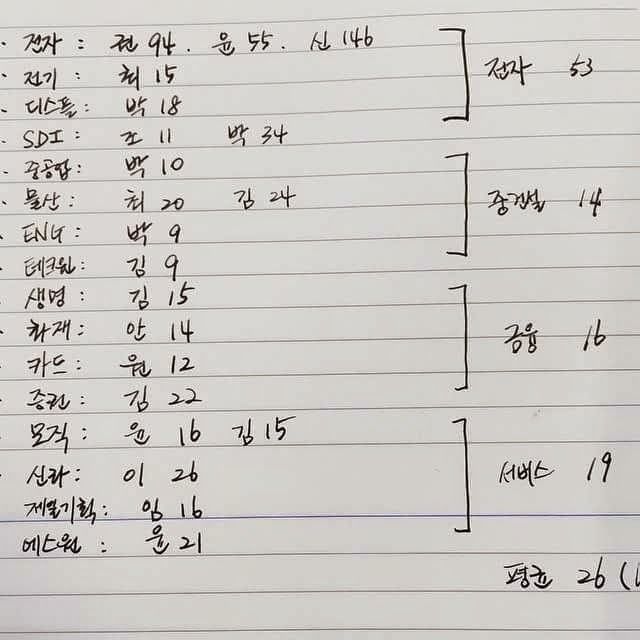 · 전자 : 권 94 . 윤 55 . 신 146
· 전기 : 최 15
· 디스플 : 박 18
· SDI : 조 11 박 34
전자 53
· 중공업 : 박 10
· 물산 : 최 20 김 24
· ENG : 박 9
· 테크윈 : 김 9
중건설 14
· 생명 : 김 15
· 화재 : 안 14
· 카드 : 원 12
· 증권 : 김 22
금융 16
· 모직 : 윤 16 김 15
· 신라 : 이 26
제일기획 : 임 16
에스원 : 윤 21
서비스 19
평균 26 (